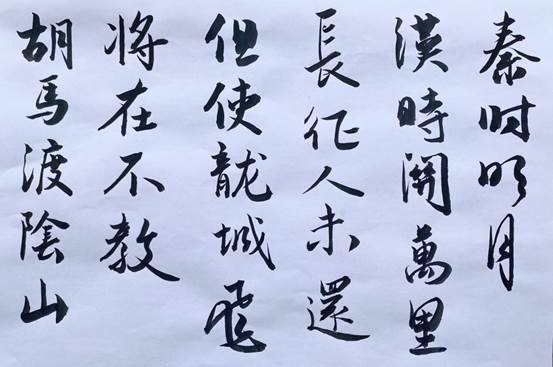 秦时明月
漢時關萬里
長征人未還
但使龍城飛
将在不教
胡馬渡陰山